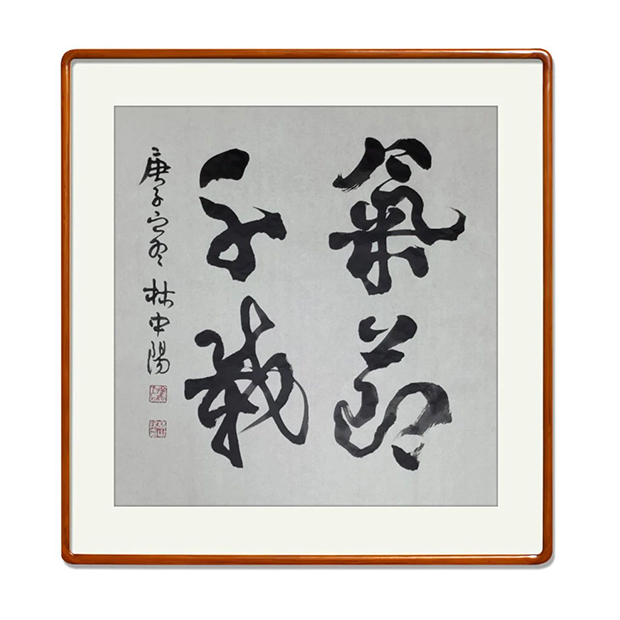 氣節
千載
庚子之冬 林中陽